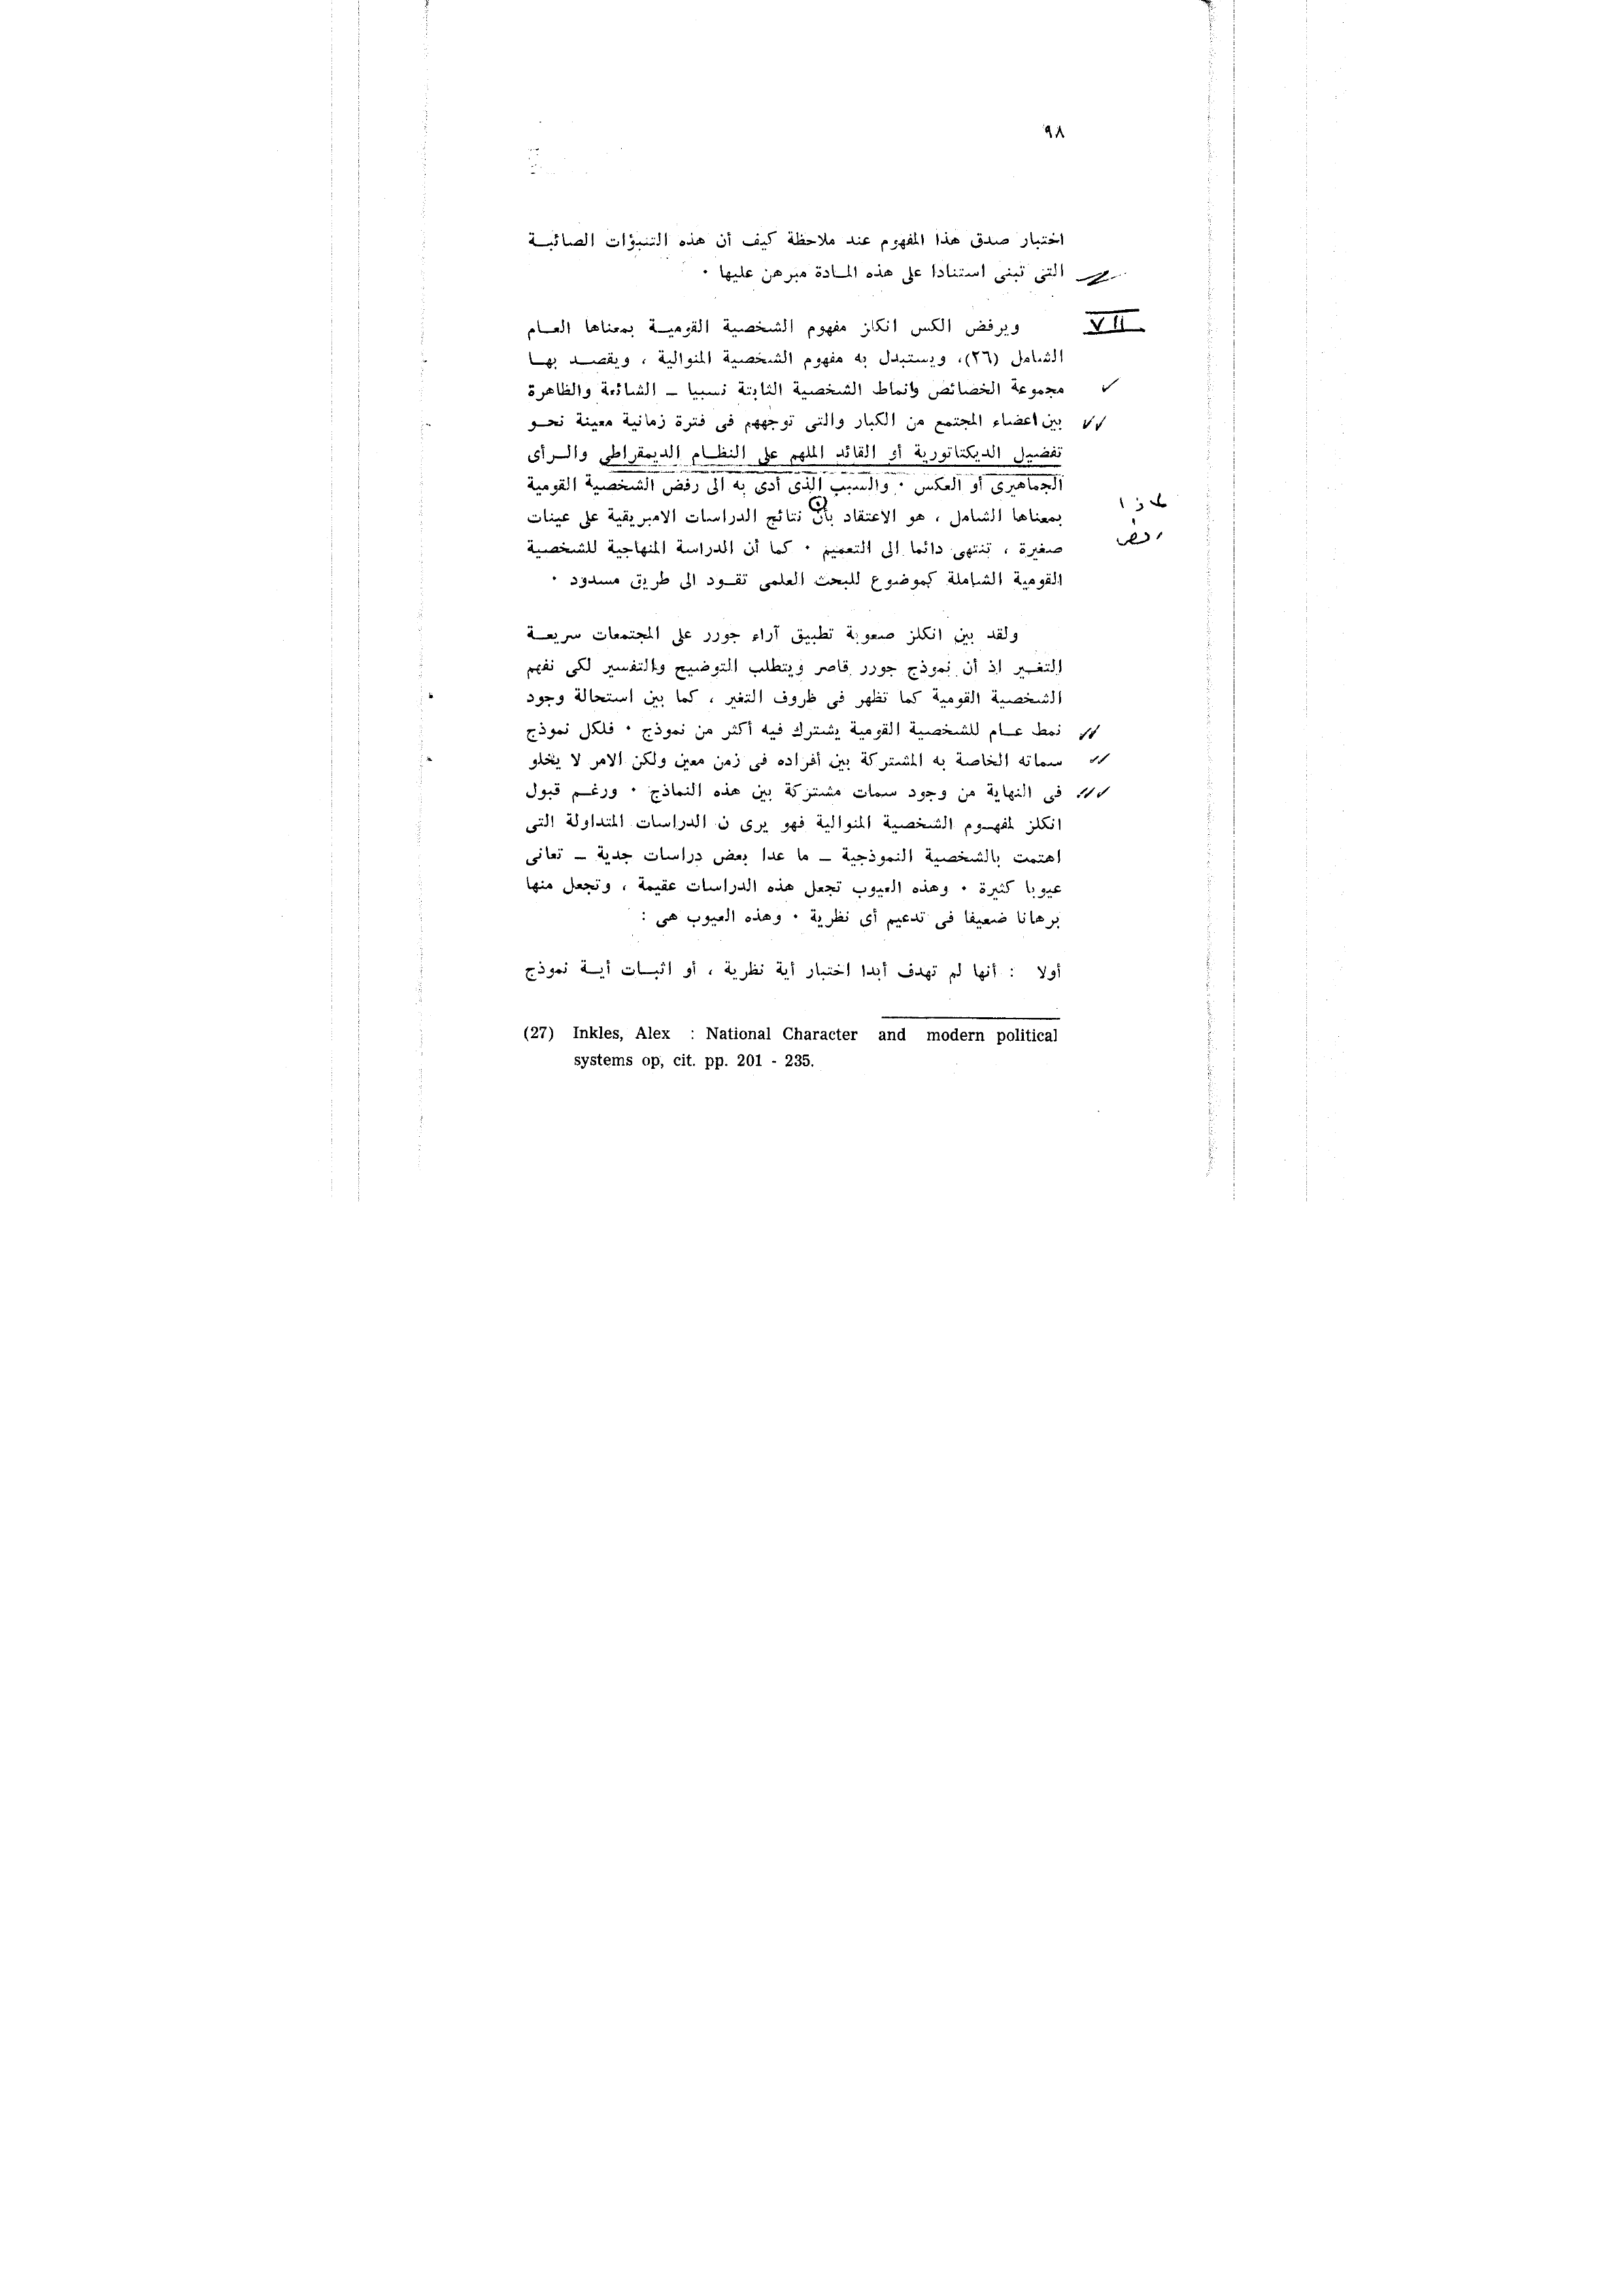 ٩٨
اختبار صدق هذا المفهوم عند ملاحظة كيف أن هذه التنبؤات الصائبـة
التى تبنى استنادا على هذه المـادة مبرهن عليها ٠
VII
ويرفض الكس انكلز مفهوم الشخصية القوميـة بمعناها العـام
الشامل (٢٦)، ويستبدل به مفهوم الشخصية المنوالية ، ويقصـد بهـا
مجموعة الخصائص وانماط الشخصية الثابتة نسبيا ــ الشائعة والظاهرة
بين اعضاء المجتمع من الكبار والتى توجههم فى فترة زمانية معينة نحـو
تفضيل الديكتاتورية أو القائد الملهم على النظـام الديمقراطى والـرأى
الجماهيرى أو العكس ٠ والسبب الذى أدى به الى رفض الشخصية القومية
بمعناها الشامل ، هو الاعتقاد بأن نتائج الدراسات الامبريقية على عينات
صغيرة ، تنتهى دائما الى التعميم ٠ كما أن الدراسة المنهاجية للشخصية
القومية الشاملة كموضوع للبحث العلمى تقـود الى طريق مسدود ٠
لماذا
رفض
ولقد بين انكلز صعوبة تطبيق آراء جورر على المجتمعات سريعـة
التغـير اذ أن نموذج جورر قاصر ويتطلب التوضيح والتفسير لكى نفهم
الشخصية القومية كما تظهر فى ظروف التغير ، كما بين استحالة وجود
نمط عـام للشخصية القومية يشترك فيه أكثر من نموذج ٠ فلكل نموذج
سماته الخاصة به المشتركة بين أفراده فى زمن معين ولكن الامر لا يخلو
فى النهاية من وجود سمات مشتركة بين هذه النماذج ٠ ورغـم قبول
انكلز لمفهـوم الشخصية المنوالية فهو يرى ن الدراسات المتداولة التى
اهتمت بالشخصية النموذجية ــ ما عدا بعض دراسات جدية ــ تعانى
عيوبا كثيرة ٠ وهذه العيوب تجعل هذه الدراسات عقيمة ، وتجعل منها
برهانا ضعيفا فى تدعيم أى نظرية ٠ وهذه العيوب هى :
أولا : أنها لم تهدف أبدا اختبار أية نظرية ، أو اثبـات أيـة نموذج
(27) Inkles, Alex : National Character and modern political
systems op, cit. pp. 201 - 235.